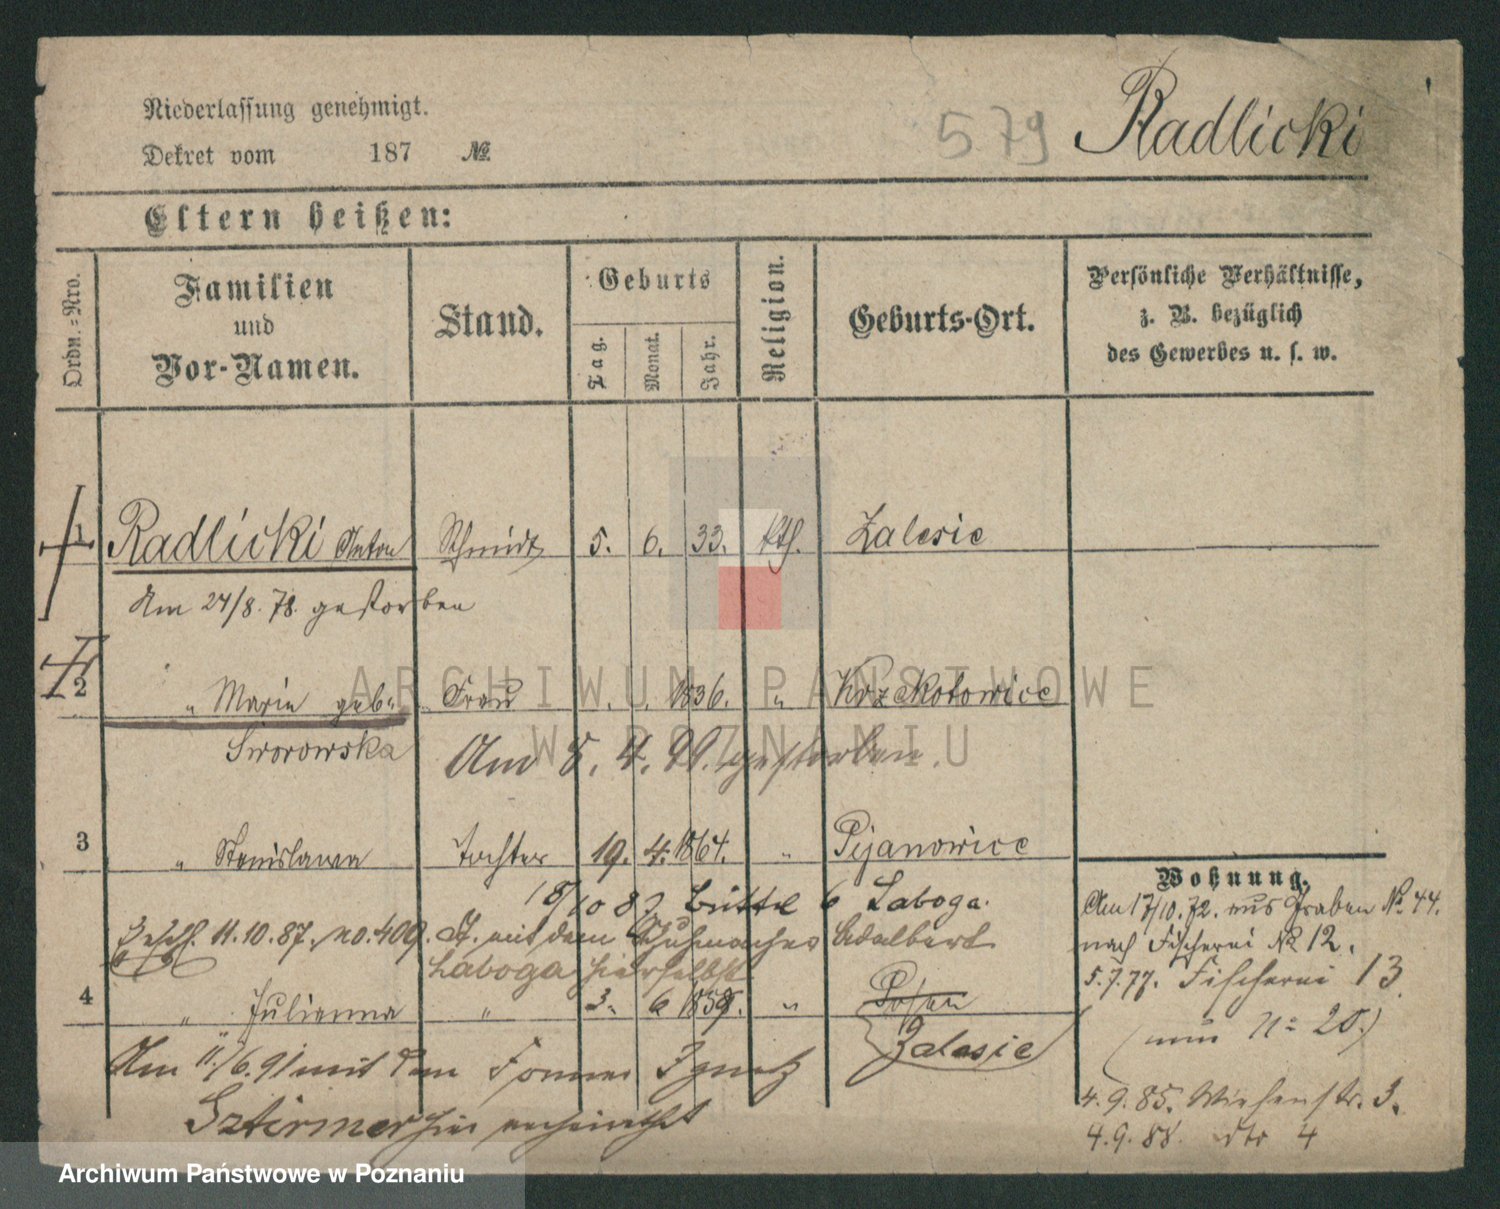 Niederlassung genehmigt.
Dekret vom 187 №
579 Radlicki
Eltern heißen:
Ordn.-Nro.
Familien und Vor-Namen.
Stand.
Geburts
Tag.
Monat.
Jahr.
Religion.
Geburts-Ort.
Persönliche Verhältnisse, z. B. bezüglich des Gewerbes u. s. w.
1 Radlicki Anton Schmidt 5. 6. 33. kth. Zalesie
Am 24/8. 78. gestorben
2 " Marie geb. Frau 1836. " Krzekotowice
Sworowska
Am 5. 4. 99. gestorben.
3 " Stanislawa Tochter 19. 4. 1864. " Pijanowice
18/10 87 6 Laboga.
11.10.87. no. 409. mit dem Schuhmacher Adalbert
Laboga hierselbst
4 " Julianna " 3. 6 1859. " Posen
Zalesie
Am 11./6. 91 mit dem Former Ignatz
Sztirmer hier verheirathet
Wohnung.
Am 17/10. 72. aus Graben № 44.
nach Fischerei № 12.
5.7.77. Fischerei 13.
(nun N= 20.)
4.9.85. Wiesenstr. 3.
4.9.88. dto 4
ARCHIWUM PAŃSTWOWE
W POZNANIU
Archiwum Państwowe w Poznaniu